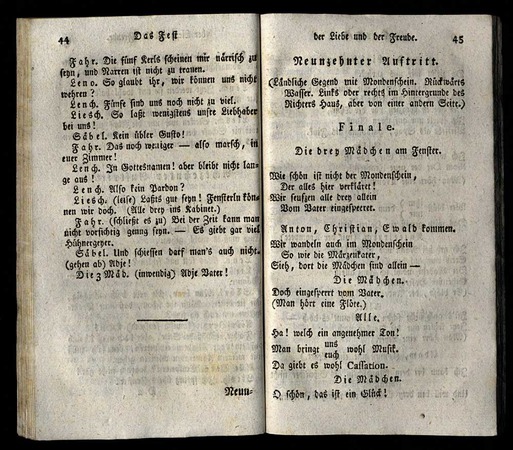 44 Das Fest
Fahr. Die fünf Kerls scheinen mir närrisch zu
seyn, und Narren ist nicht zu trauen.
Leno. So glaubt ihr, wir können uns nicht
wehren?
Lench. Fünfe sind uns noch nicht zu viel.
Liesch. So laßt wenigstens unsre Liebhaber
bei uns!
Säbel. Kein übler Gusto!
Fahr. Das noch weniger — also marsch, in
euer Zimmer!
Lench. In Gottesnamen! aber bleibt nicht lan-
ge aus!
Lench. Also kein Pardon?
Liesch. (leise) Laßts gut seyn! Fensterln kön-
nen wir doch. (Alle drey ins Kabinet.)
Fahr. (schließt es zu) Bei der Zeit kann man
nicht vorsichtig genug seyn. — Es giebt gar viel
Hühnergeyer.
Säbel. Und schiessen darf man's auch nicht.
(gehen ab) Adje!
Die 3 Mäd. (inwendig) Adje Vater!
Neun-
der Liebe und der Freude. 45
Neunzehnter Auftritt.
(Ländliche Gegend mit Mondenschein. Rückwärts
Wasser. Links oder rechts im Hintergrunde des
Richters Haus, aber von einer andern Seite.)
Finale.
Die drey Mädchen am Fenster.
Wie schön ist nicht der Mondenschein,
Der alles hier verkläret!
Wir seufzen alle drey allein
Vom Vater eingesperret.
Anton, Christian, Ewald kommen.
Wir wandeln auch im Mondenschein
So wie die Märzenkater,
Sieh, dort die Mädchen sind allein —
Die Mädchen.
Doch eingesperrt vom Vater.
(Man hört eine Flöte.)
Alle.
Ha! welch ein angenehmer Ton!
Man bringt uns wohl Musik.
euch
Da giebt es wohl Cassation.
Die Mädchen.
O schön, das ist ein Glück!